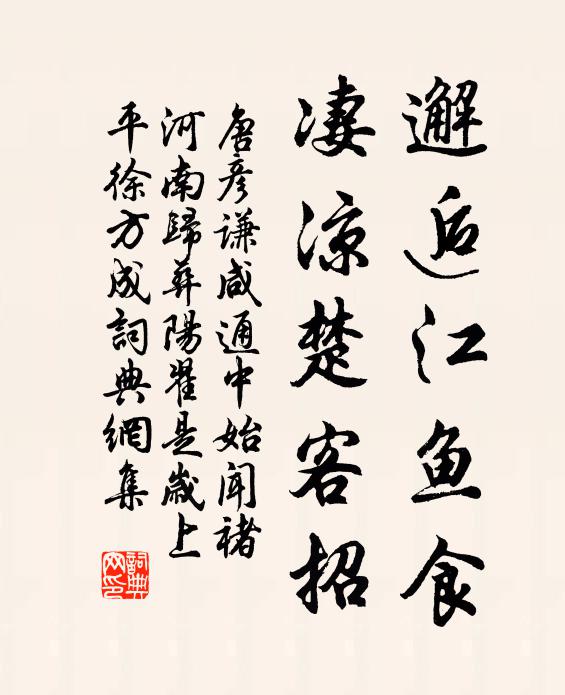 邂逅江魚食
凄凉楚客招
唐彦谦咸通中始闻褚
河南歸葬陽翟是歲上
平徐方成詞典網集
詞典
网印